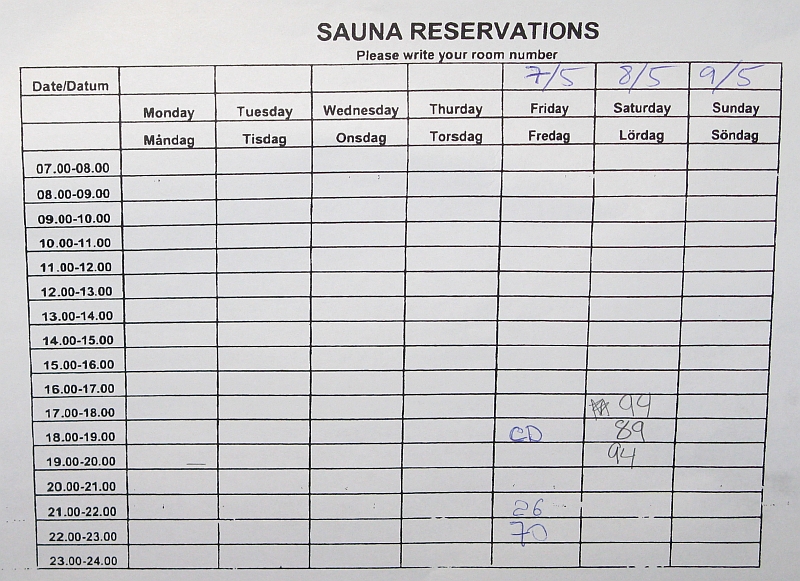 SAUNA RESERVATIONS
Please write your room number
Date/Datum 7/5 8/5 9/5
Monday Tuesday Wednesday Thurday Friday Saturday Sunday
Måndag Tisdag Onsdag Torsdag Fredag Lördag Söndag
07.00-08.00
08.00-09.00
09.00-10.00
10.00-11.00
11.00-12.00
12.00-13.00
13.00-14.00
14.00-15.00
15.00-16.00
16.00-17.00
17.00-18.00 94
18.00-19.00 CD 89
19.00-20.00 94
20.00-21.00
21.00-22.00 26
22.00-23.00 70
23.00-24.00